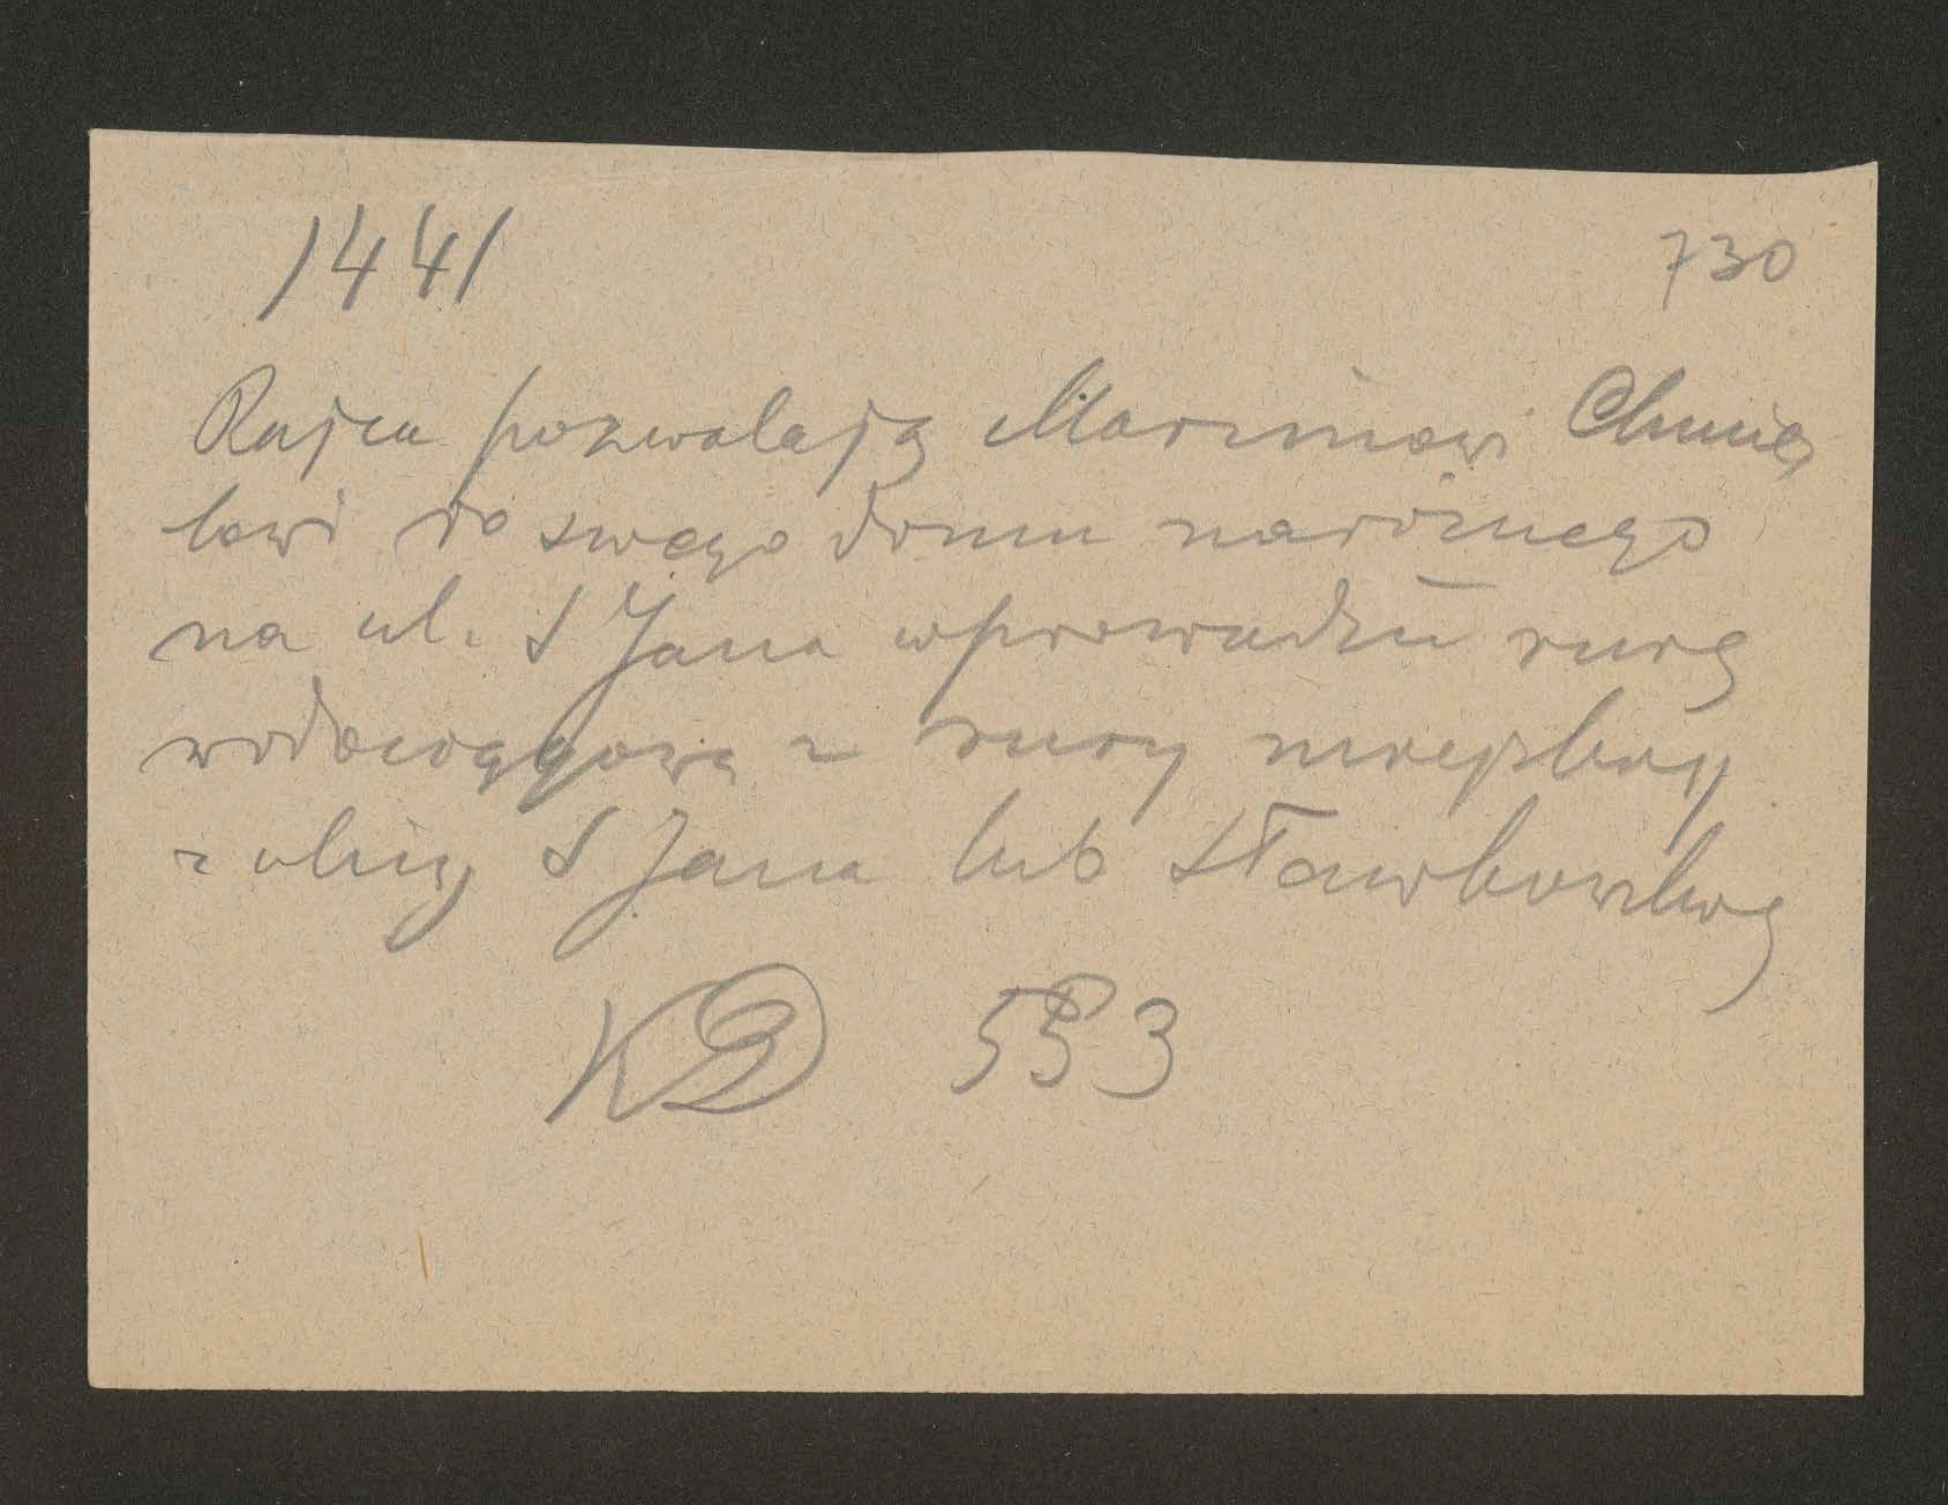 1441 730
Rajcy pozwalają Marcinowi Chmie
lowi do swego domu narożnego
na ul. S Jana wprowadzić rurę
wodociągową z rury miejskiej
z ulicy S Jana lub Sławkowskiej
KD 553